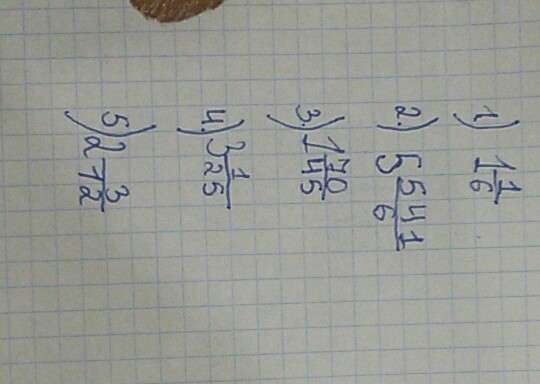 1.) 1 1/6
2.) 5 541/6
3.) 1 70/45
4.) 3 1/25
5.) 2 3/12